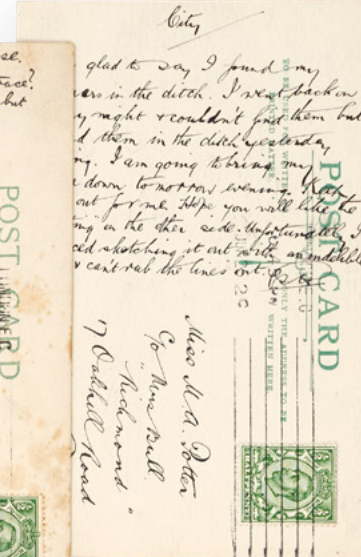 City
glad to say I found my
in the ditch. I went back on
night & couldn't find them but
d them in the ditch yesterday
ng. I am going to bring my
down to morrow evening. Keep
out for me. Hope you will like the
ing on the other side. Unfortunately I
ced sketching it out with an indelible
& can't rub the lines out.
POST CARD
THE ADDRESS TO BE
WRITTEN HERE.
Miss M. A. Potter
C/o Mrs Bull.
"Richmond"
17 Oakhill Road
se.
face?
but
POST CARD